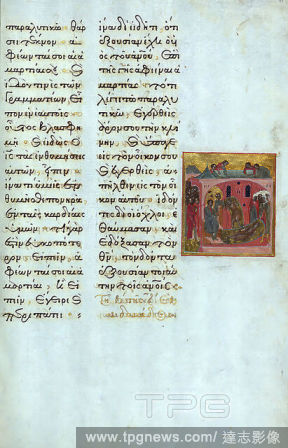 παραλυτικῶ· θάρ
σει τέκνον· ἀ
φέωνταί σοι αἱ ἁ
μαρτίαι σου· καὶ
ἰδού τινες τῶν
γραμματέων, εἶ
πον ἐν ἑαυτοῖς·
οὗτος βλασφη
μεῖ· καὶ εἰδὼς ὁ ἰς
τὰς ἐνθυμήσεις
αὐτῶν, εἶπεν·
ἵνα τί ὑμεῖς ἐν
θυμεῖσθε πονηρὰ
ἐν ταῖς καρδίαις
ὑμῶν· τί γάρ
ἐστιν εὐκοπώτε
ρον· εἰπεῖν, ἀ
φέωνταί σοι αἱ ἁ
μαρτίαι· ἢ εἰ
πεῖν, ἔγειρε καὶ
περιπάτει·
ἵνα δὲ εἰδῆτε ὅτι
ἐξουσίαν ἔχει ὁ υἱ
ὸς τοῦ ἀνου ἐπὶ
τῆς γῆς ἀφιέναι ἁ
μαρτίας· τότε
λέγει τῶ παραλυ
τικῶ· ἐγερθεὶς
ἆρόν σου τὴν κλί
νην· καὶ ὕπαγε
εἰς τὸν οἶκόν σου
καὶ ἐγερθεὶς ἀ
πῆλθεν εἰς τὸν οἶ
κον αὐτοῦ· ἰδόν
τες δὲ οἱ ὄχλοι ἐ
θαύμασαν καὶ
ἐδόξασαν τὸν
θν τὸν δόντα
ἐξουσίαν τοιαύ
την τοῖς ἀνοις·
TPG
www.tpgnews.com/達志影像